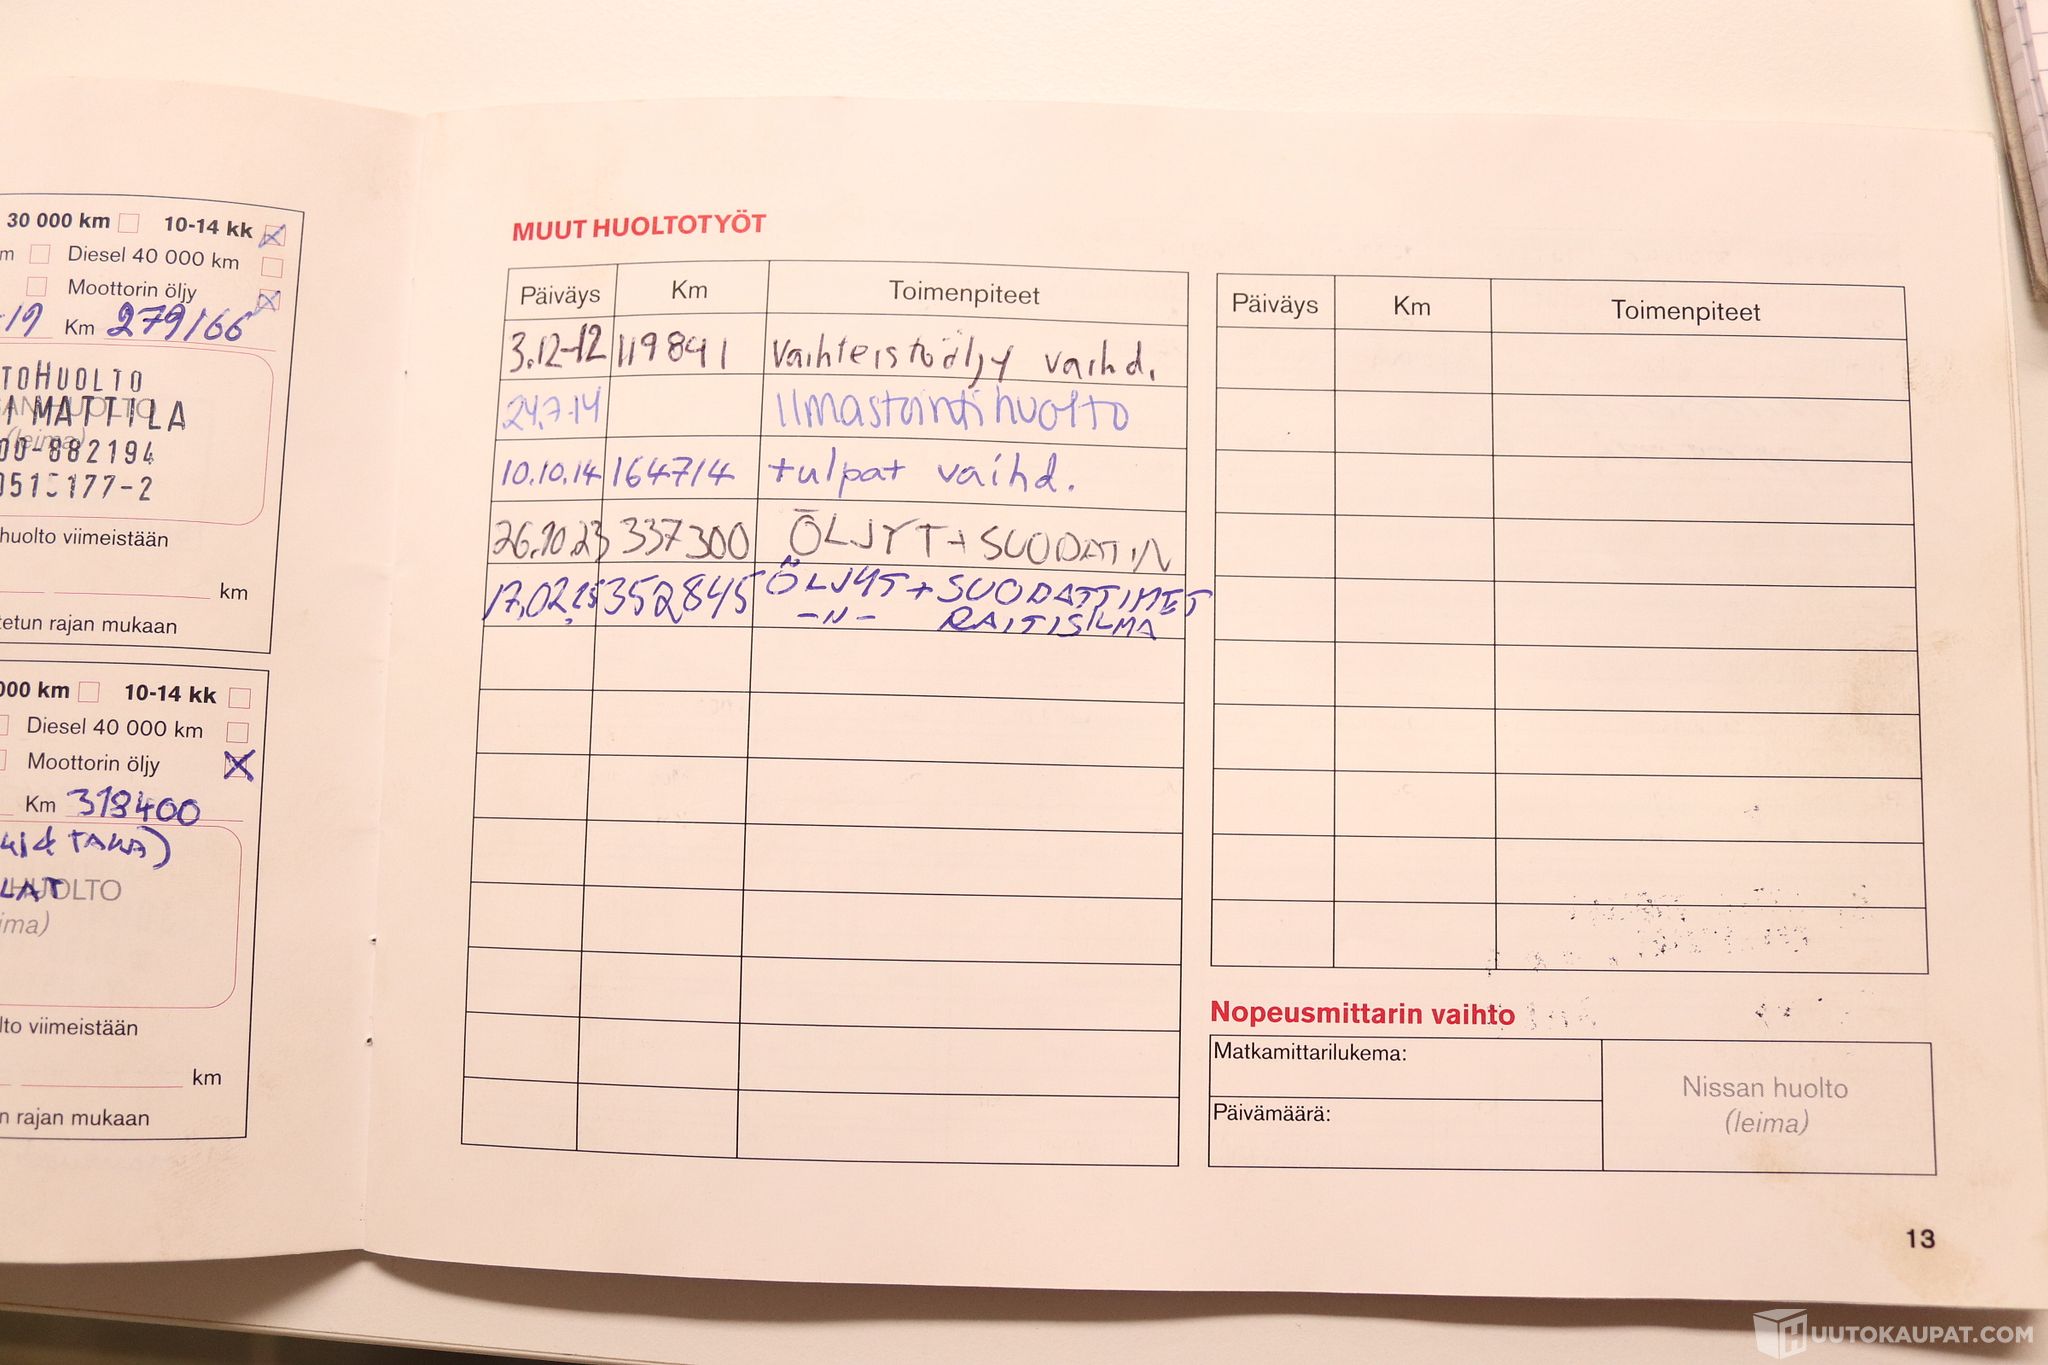 30 000 km 10-14 kk
m Diesel 40 000 km
Moottorin öljy
-19 Km 279166
TOHUOLTO
I MATTILA
(leima)
00-882194
0515177-2
huolto viimeistään
km
tetun rajan mukaan
000 km 10-14 kk
Diesel 40 000 km
Moottorin öljy
Km 318400
TAKA)
LAT HUOLTO
ima)
lto viimeistään
km
n rajan mukaan
MUUT HUOLTOTYÖT
Päiväys Km Toimenpiteet
3.12-12 119841 Vaihteistoöljy vaihd.
24.7.14 Ilmastointihuolto
10.10.14 164714 tulpat vaihd.
26.10.23 337300 ÖLJYT + SUODATIN
17.02.25 352845 ÖLJYT + SUODATTIMET
-11- RAITISILMA
Päiväys Km Toimenpiteet
Nopeusmittarin vaihto
Matkamittarilukema:
Päivämäärä:
Nissan huolto
(leima)
13
HUUTOKAUPAT.COM